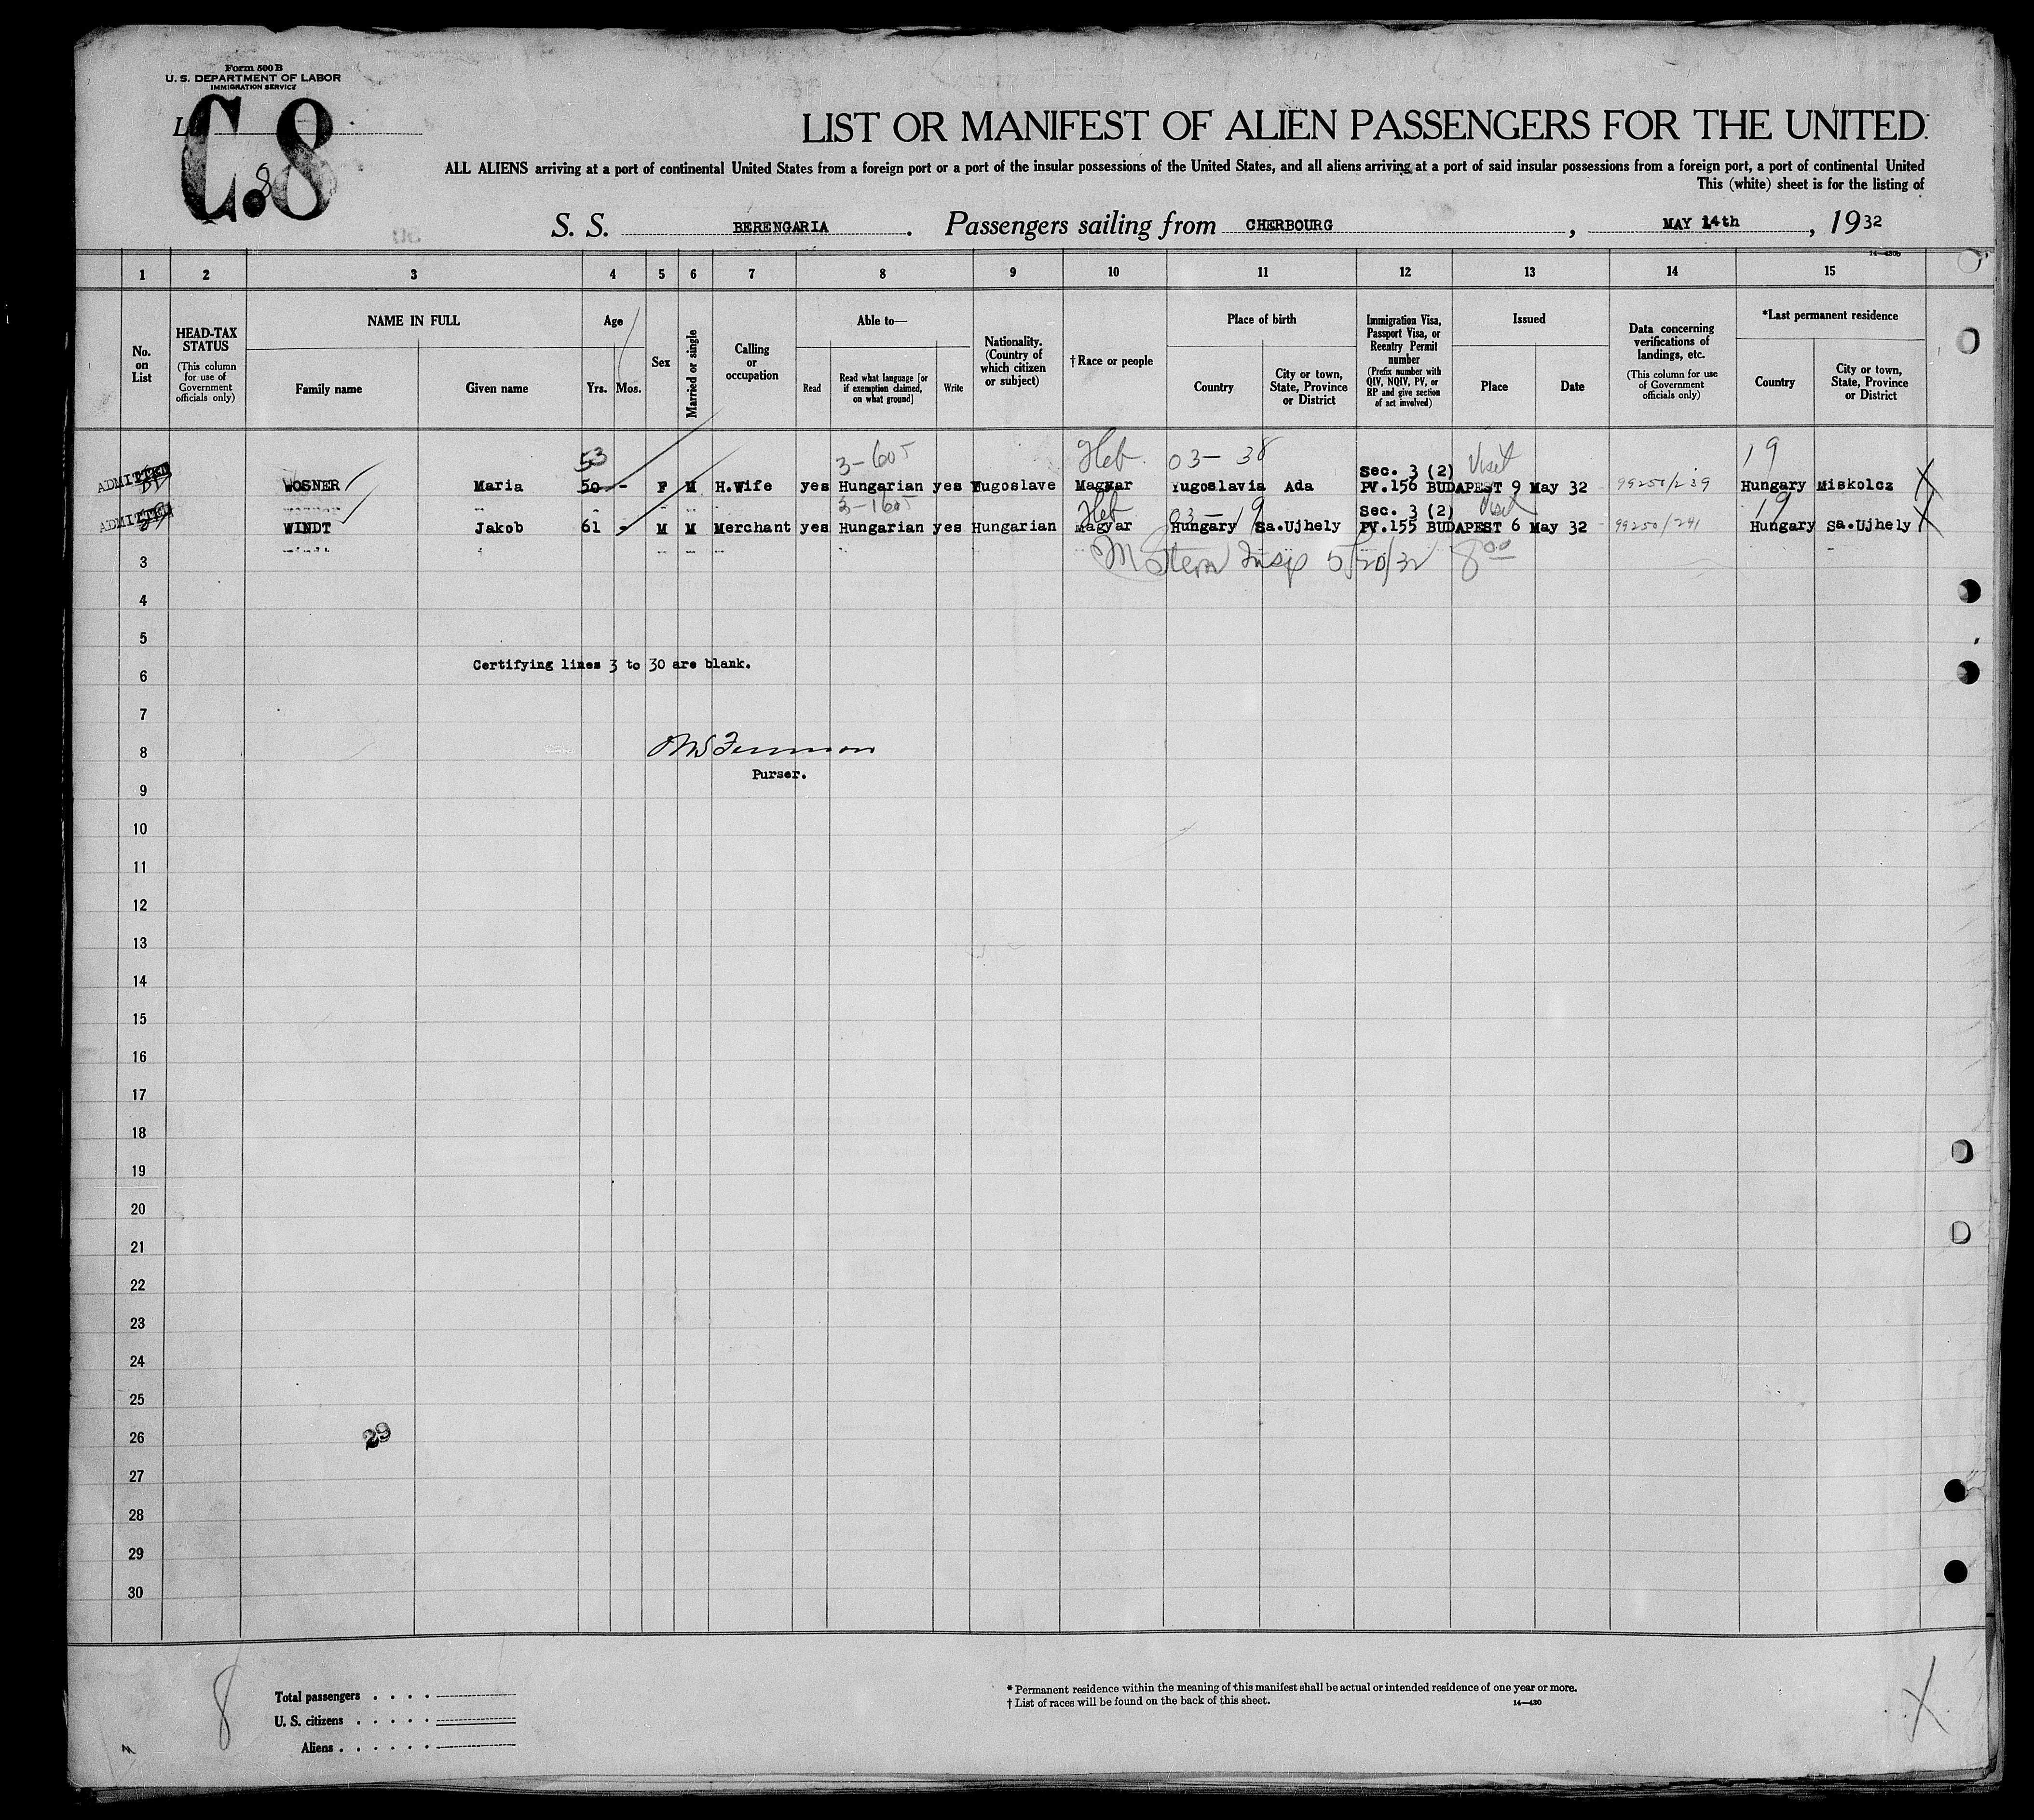 Form 500 B
U. S. DEPARTMENT OF LABOR
IMMIGRATION SERVICE
C.8
8
LIST OR MANIFEST OF ALIEN PASSENGERS FOR THE UNITED
ALL ALIENS arriving at a port of continental United States from a foreign port or a port of the insular possessions of the United States, and all aliens arriving at a port of said insular possessions from a foreign port, a port of continental United
This (white) sheet is for the listing of
S. S. BERENGARIA. Passengers sailing from CHERBOURG, MAY 14th, 1932
14—430b
1 2 3 4 5 6 7 8 9 10 11 12 13 14 15
No. on List
HEAD-TAX STATUS (This column for use of Government officials only)
NAME IN FULL Family name Given name
Age Yrs. Mos.
Sex
Married or single
Calling or occupation
Able to— Read Read what language [or if exemption claimed, on what ground] Write
Nationality. (Country of which citizen or subject)
†Race or people
Place of birth Country City or town, State, Province or District
Immigration Visa, Passport Visa, or Reentry Permit number (Prefix number with QIV, NQIV, PV, or RP and give section of act involved)
Issued Place Date
Data concerning verifications of landings, etc. (This column for use of Government officials only)
*Last permanent residence Country City or town, State, Province or District
53 3-605 Heb. 03- 38 Sec. 3 (2) Visit 19
ADMITTED WOSNER Maria 50 - F M H.Wife yes Hungarian yes Yugoslave Magyar Yugoslavia Ada PV.156 BUDAPEST 9 May 32 99250/239 Hungary Miskolcz X
3-1605 Heb 03-19 Sec. 3 (2) Visit 19
ADMITTED WINDT Jakob 61 - M M Merchant yes Hungarian yes Hungarian Magyar Hungary Sa.Ujhely PV.155 BUDAPEST 6 May 32 99250/241 Hungary Sa.Ujhely X
3 M Stern Insp 5/20/32 8 00
4
5
Certifying lines 3 to 30 are blank.
6
7
8
Purser.
9
10
11
12
13
14
15
16
17
18
19
20
21
22
23
24
25
26 29
27
28
29
30
8
Total passengers . . . .
U. S. citizens . . . . .
Aliens . . . . . .
* Permanent residence within the meaning of this manifest shall be actual or intended residence of one year or more.
† List of races will be found on the back of this sheet. 14—430
X